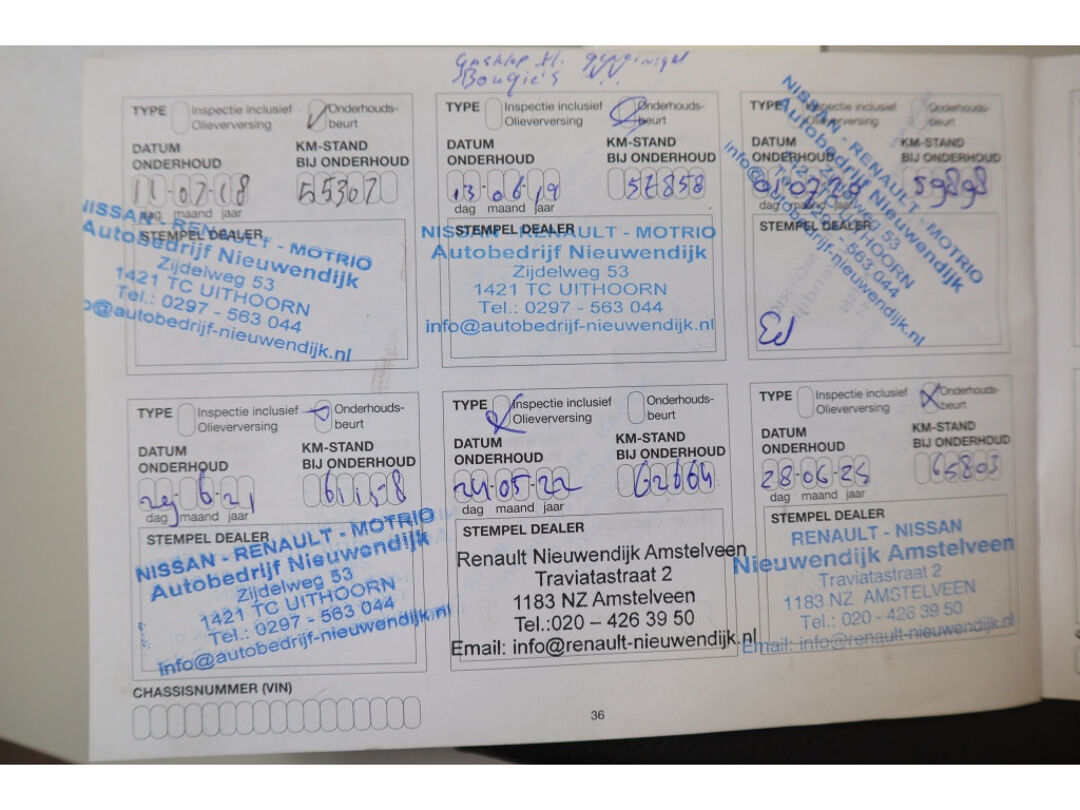 gasklep H. gereinigd
Bougie's " "
TYPE Inspectie inclusief Olieverversing Onderhouds-beurt
DATUM ONDERHOUD
KM-STAND BIJ ONDERHOUD
11-07-18
55307
dag maand jaar
STEMPEL DEALER
NISSAN - RENAULT - MOTRIO
Autobedrijf Nieuwendijk
Zijdelweg 53
1421 TC UITHOORN
Tel.: 0297 - 563 044
info@autobedrijf-nieuwendijk.nl
TYPE Inspectie inclusief Olieverversing Onderhouds-beurt
DATUM ONDERHOUD
KM-STAND BIJ ONDERHOUD
13-06-19
57858
dag maand jaar
STEMPEL DEALER
NISSAN - RENAULT - MOTRIO
Autobedrijf Nieuwendijk
Zijdelweg 53
1421 TC UITHOORN
Tel.: 0297 - 563 044
info@autobedrijf-nieuwendijk.nl
TYPE Inspectie inclusief Olieverversing Onderhouds-beurt
DATUM ONDERHOUD
KM-STAND BIJ ONDERHOUD
59898
dag maand jaar
STEMPEL DEALER
NISSAN - RENAULT - MOTRIO
Autobedrijf Nieuwendijk
Zijdelweg 53
1421 TC UITHOORN
Tel.: 0297 - 563 044
info@autobedrijf-nieuwendijk.nl
TYPE Inspectie inclusief Olieverversing Onderhouds-beurt
DATUM ONDERHOUD
KM-STAND BIJ ONDERHOUD
29-6-21
dag maand jaar
STEMPEL DEALER
NISSAN - RENAULT - MOTRIO
Autobedrijf Nieuwendijk
Zijdelweg 53
1421 TC UITHOORN
Tel.: 0297 - 563 044
info@autobedrijf-nieuwendijk.nl
TYPE Inspectie inclusief Olieverversing Onderhouds-beurt
DATUM ONDERHOUD
KM-STAND BIJ ONDERHOUD
24-05-22
62664
dag maand jaar
STEMPEL DEALER
Renault Nieuwendijk Amstelveen
Traviatastraat 2
1183 NZ Amstelveen
Tel.:020 – 426 39 50
Email: info@renault-nieuwendijk.nl
TYPE Inspectie inclusief Olieverversing Onderhouds-beurt
DATUM ONDERHOUD
KM-STAND BIJ ONDERHOUD
65803
dag maand jaar
STEMPEL DEALER
RENAULT - NISSAN
Nieuwendijk Amstelveen
Traviatastraat 2
1183 NZ AMSTELVEEN
Tel.: 020 - 426 39 50
Email: info@renault-nieuwendijk.nl
CHASSISNUMMER (VIN)
36